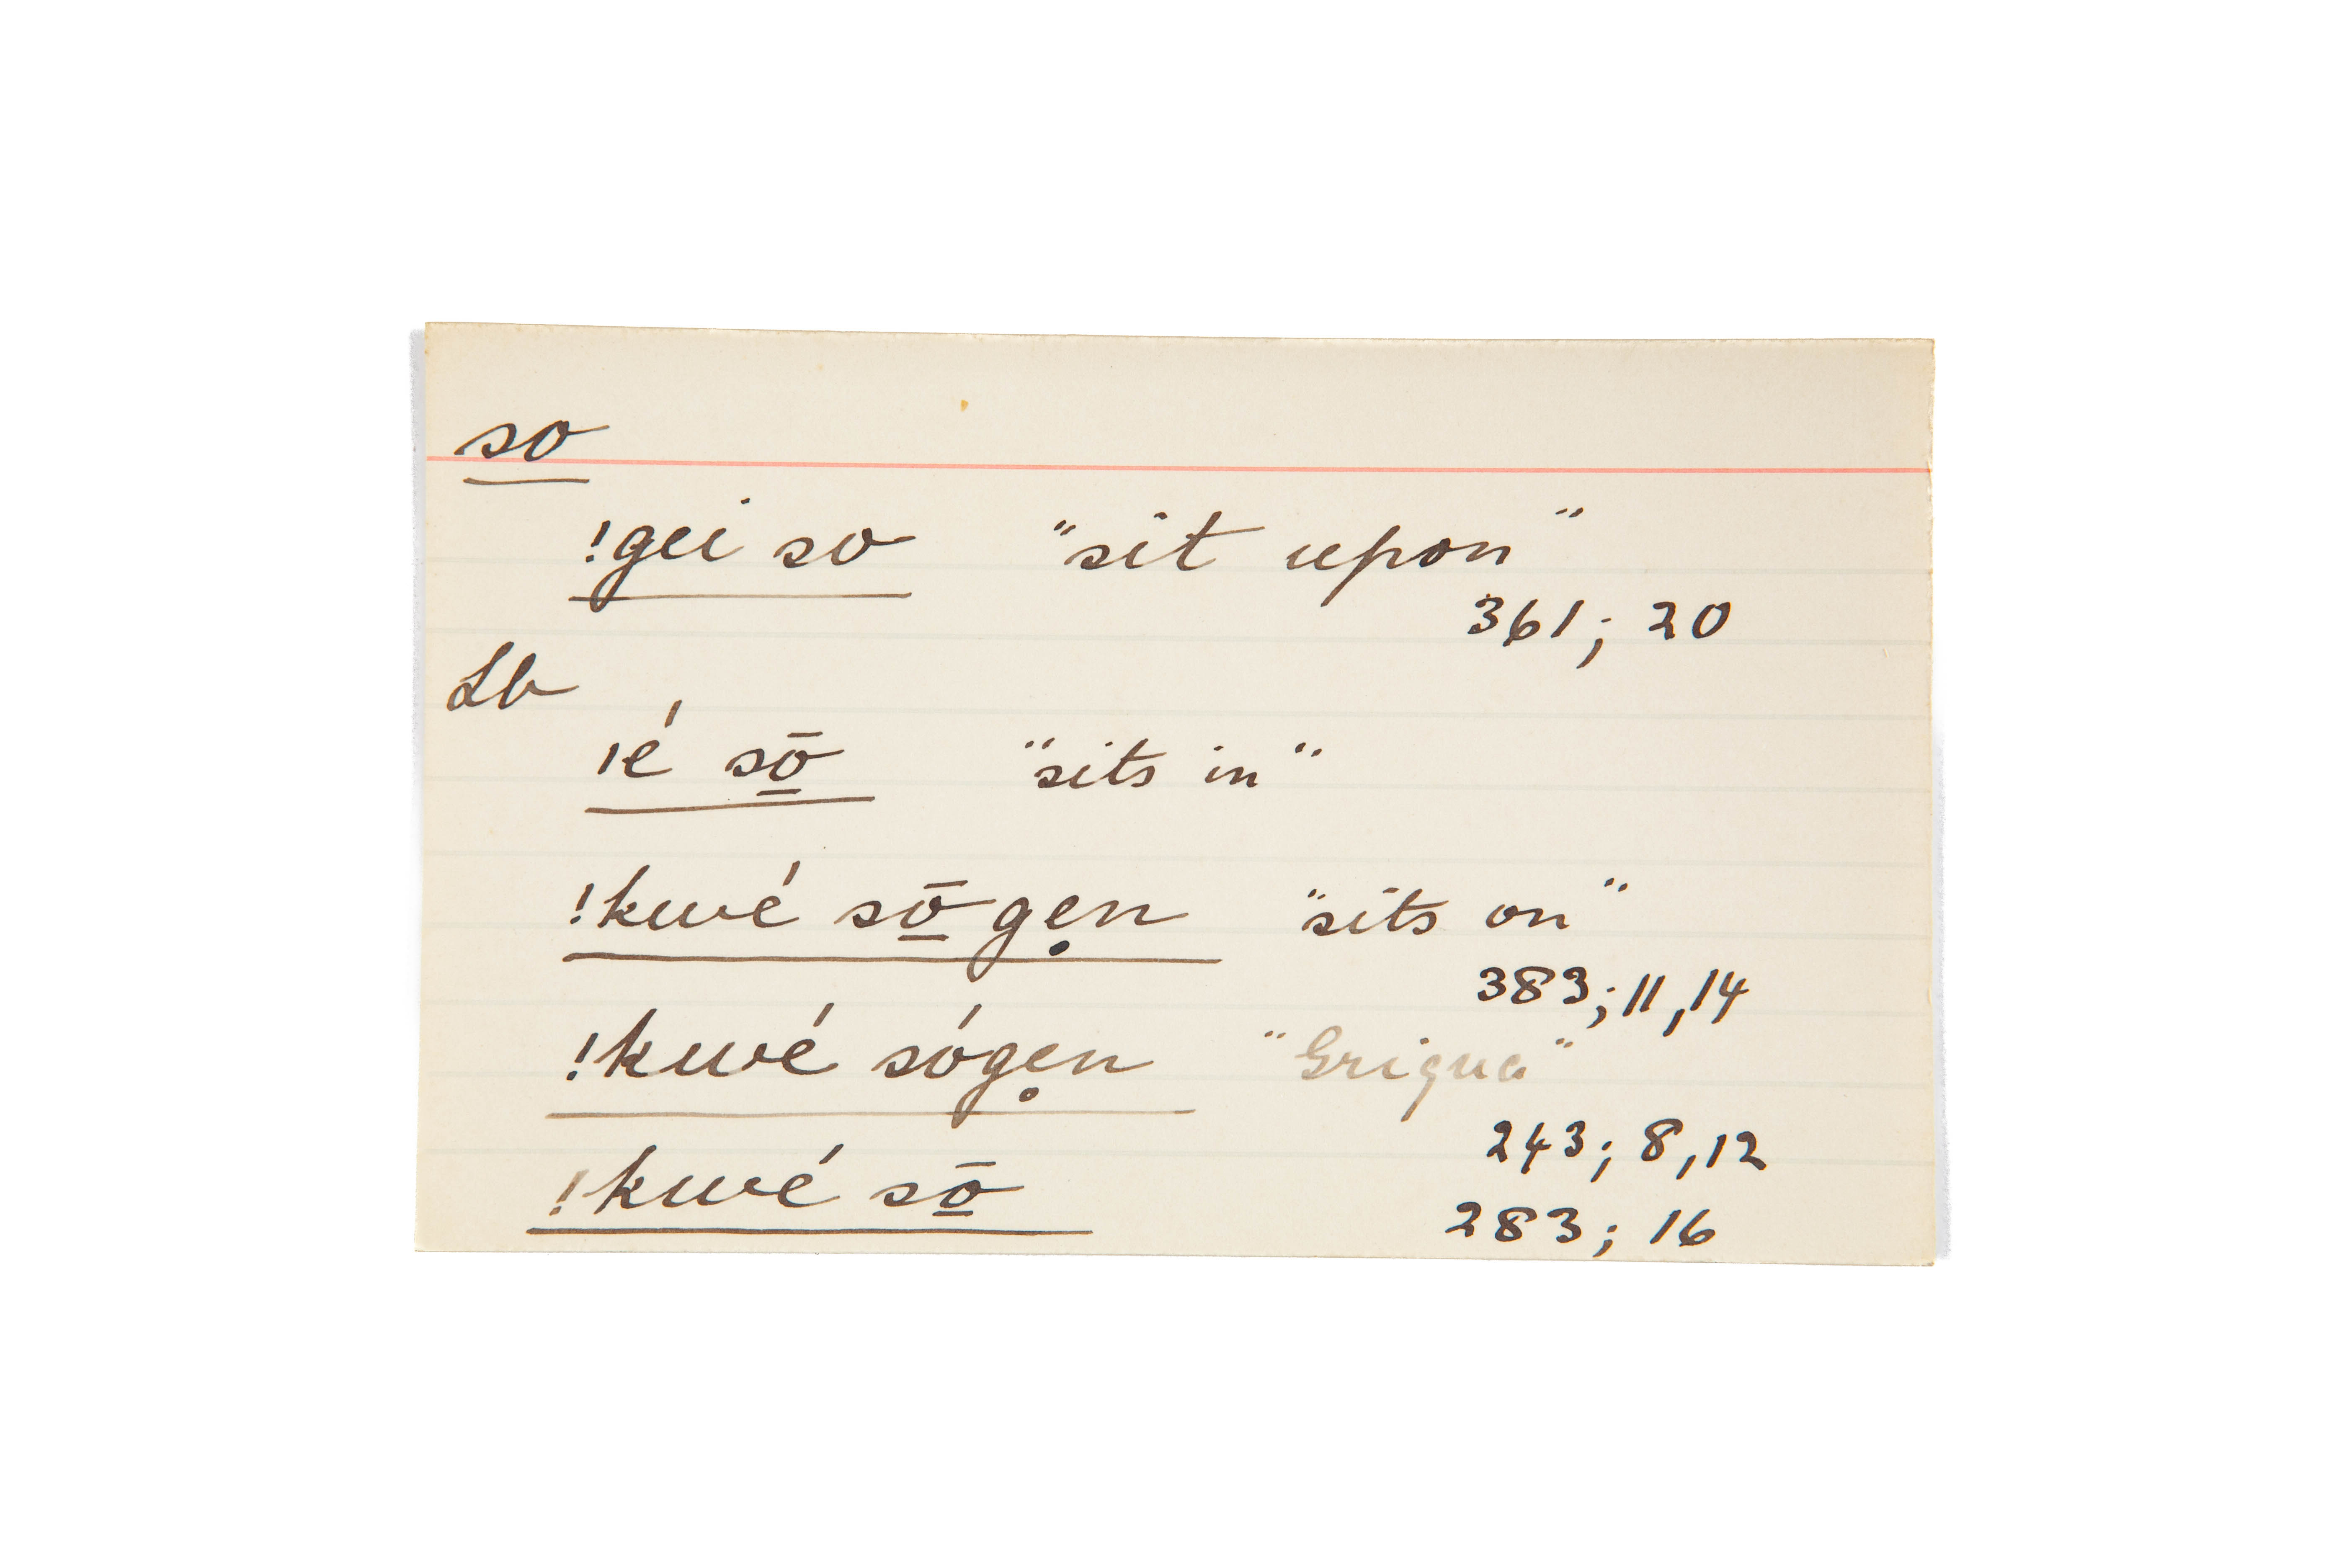 so
!gei so "sit upon"
361; 20
Lb
ǀé sō̱ "sits in"
!kwé sō̱gẹn "sits on"
383; 11, 14
!kwé sógẹn "Griqua"
243; 8, 12
!kwé sō̱
283; 16